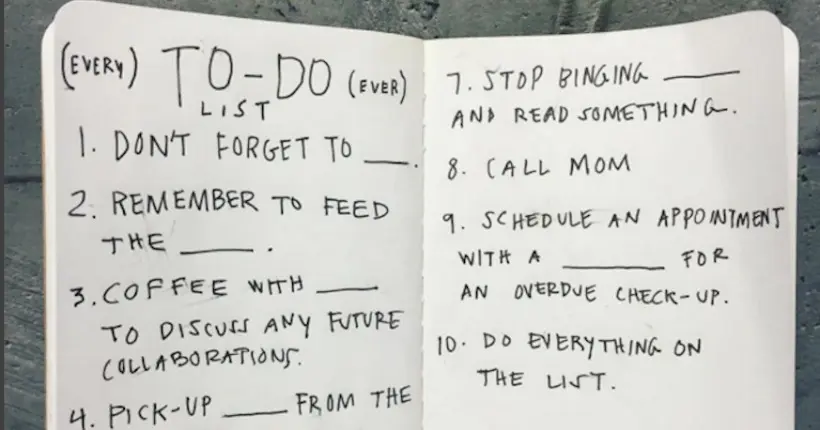 (EVERY) TO-DO (EVER)
LIST
1. DON'T FORGET TO ___.
2. REMEMBER TO FEED
THE ___.
3. COFFEE WITH ___
TO DISCUSS ANY FUTURE
COLLABORATIONS.
4. PICK-UP ___ FROM THE
7. STOP BINGING ___
AND READ SOMETHING.
8. CALL MOM
9. SCHEDULE AN APPOINTMENT
WITH A ___ FOR
AN OVERDUE CHECK-UP.
10. DO EVERYTHING ON
THE LIST.